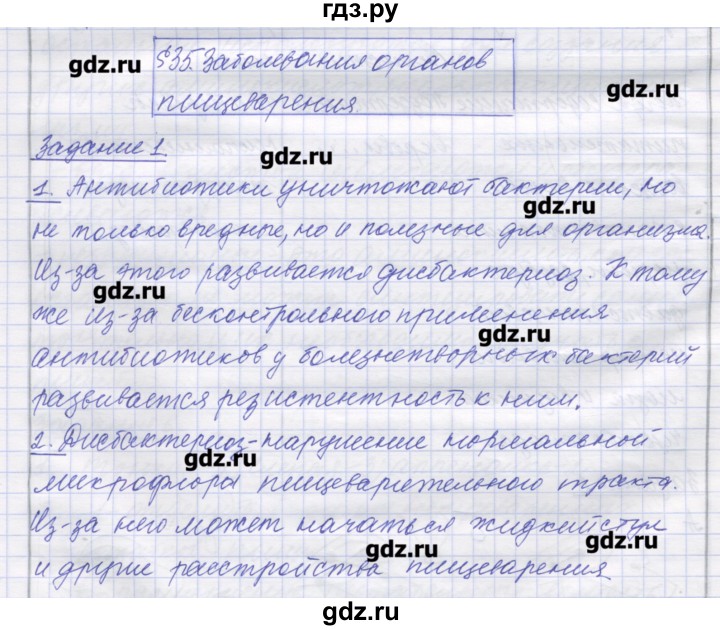 гдз.ру
§35. Заболевания органов
пищеварения
Задание 1.
1. Антибиотики уничтожают бактерии, но
не только вредные, но и полезные для организма.
Из-за этого развивается дисбактериоз. К тому
же из-за бесконтрольного применения
антибиотиков у болезнетворных бактерий
развивается резистентность к ним.
2. Дисбактериоз-нарушение нормальной
микрофлоры пищеварительного тракта.
Из-за него может начаться жидкий стул
и другие расстройства пищеварения
gdz.ru
gdz.ru
gdz.ru
gdz.ru
gdz.ru
gdz.ru
gdz.ru
gdz.ru
gdz.ru
gdz.ru